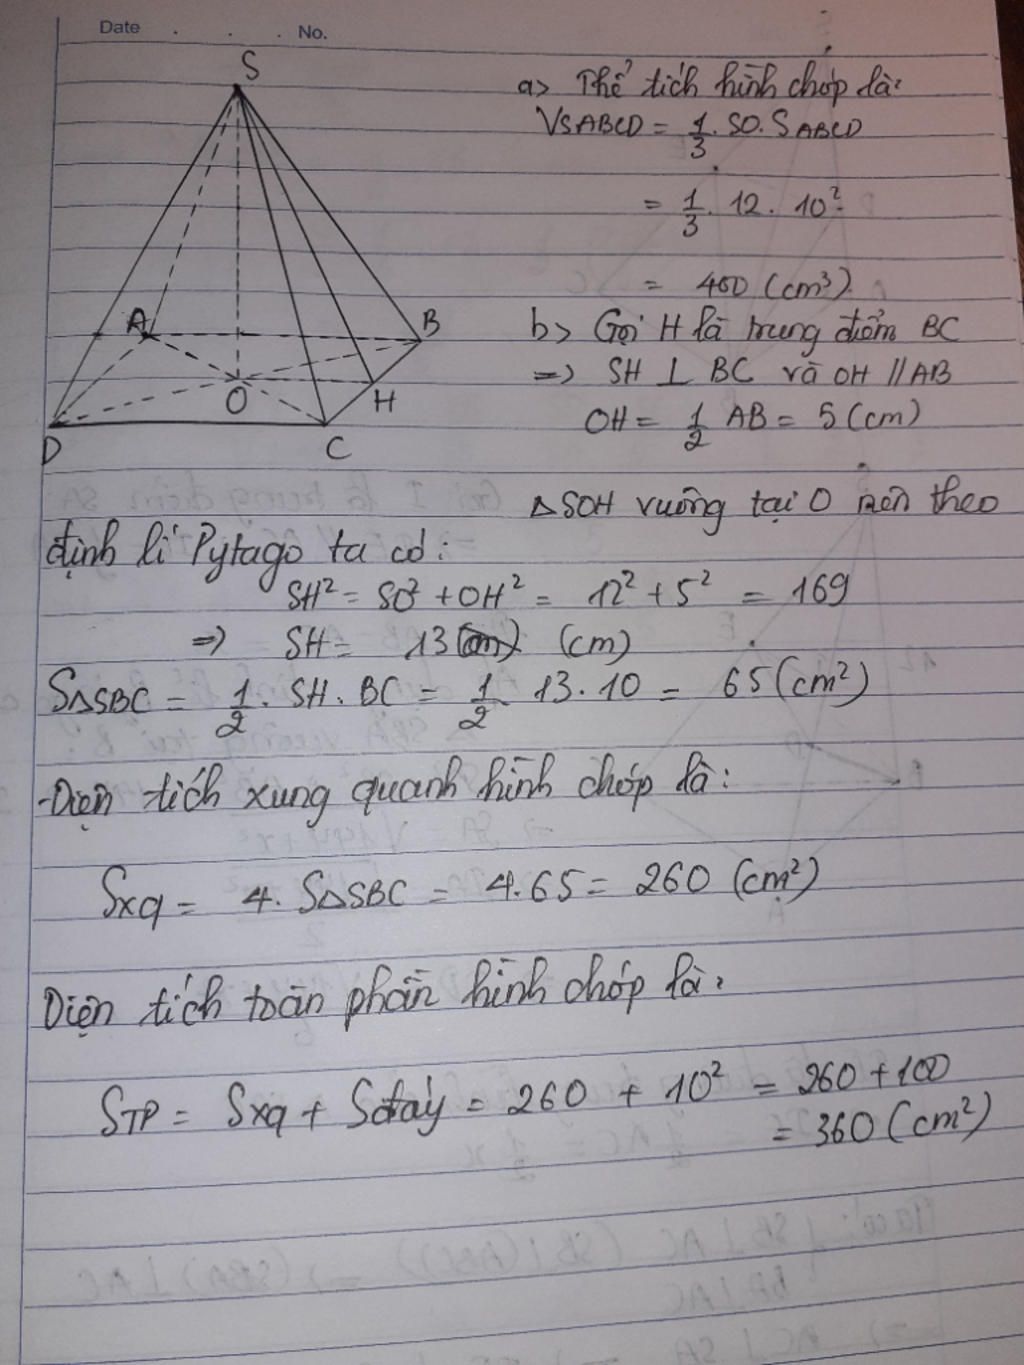 Date . . . No.
S
A
B
O
H
D
C
a> Thể tích hình chóp là:
VSABCD = 1/3 . SO. SABCD
= 1/3 . 12 . 10²
= 400 (cm³)
b> Gọi H là trung điểm BC
=> SH ⊥ BC và OH // AB
OH = 1/2 AB = 5 (cm)
△SOH vuông tại O nên theo
định lí Pytago ta có:
SH² = SO² + OH² = 12² + 5² = 169
=> SH = 13 (cm)
S△SBC = 1/2 . SH . BC = 1/2 . 13 . 10 = 65 (cm²)
-Diện tích xung quanh hình chóp là:
Sxq = 4. S△SBC = 4.65 = 260 (cm²)
Diện tích toàn phần hình chóp là:
STP = Sxq + Sđáy = 260 + 10² = 260 + 100
= 360 (cm²)